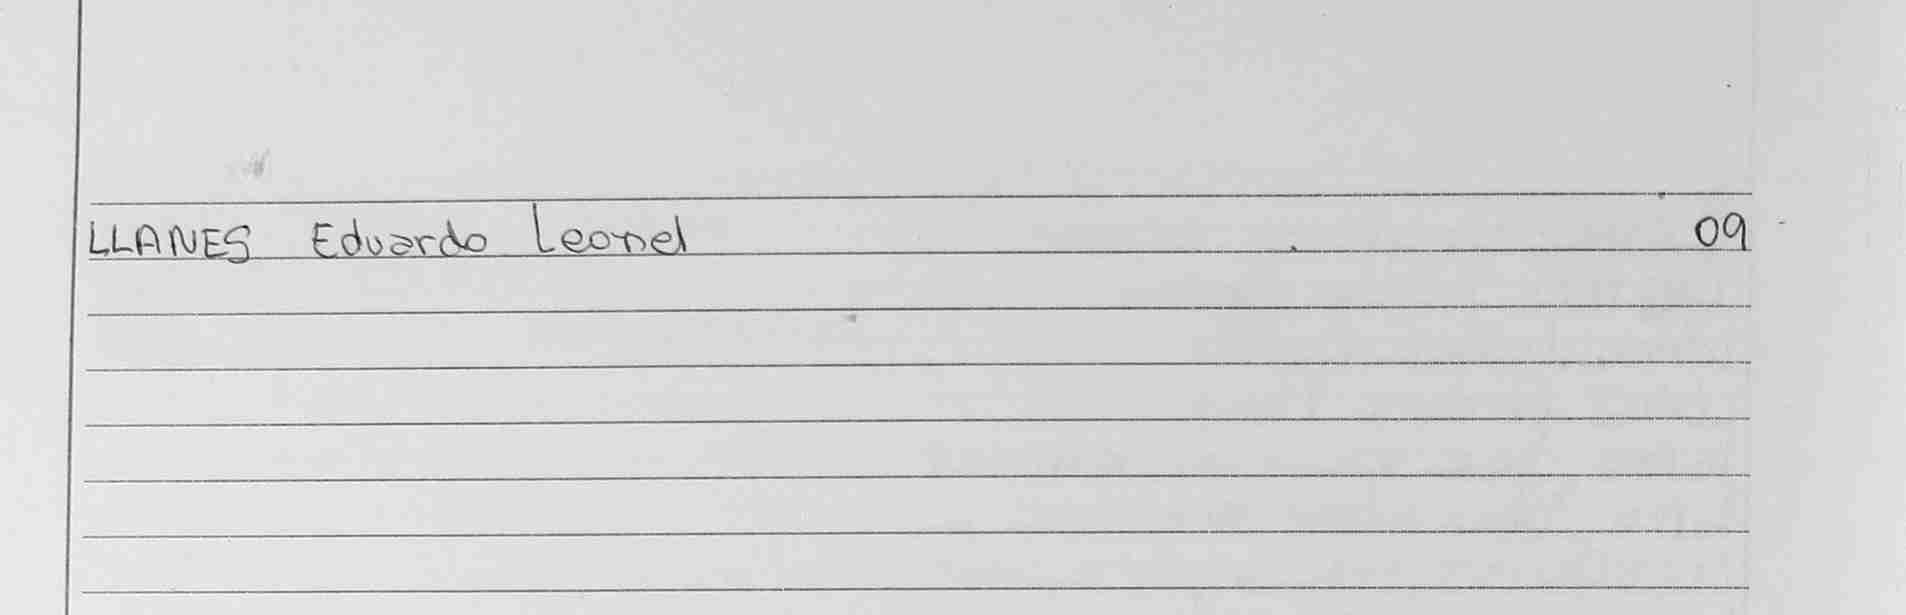 LLANES Eduardo Leonel 09